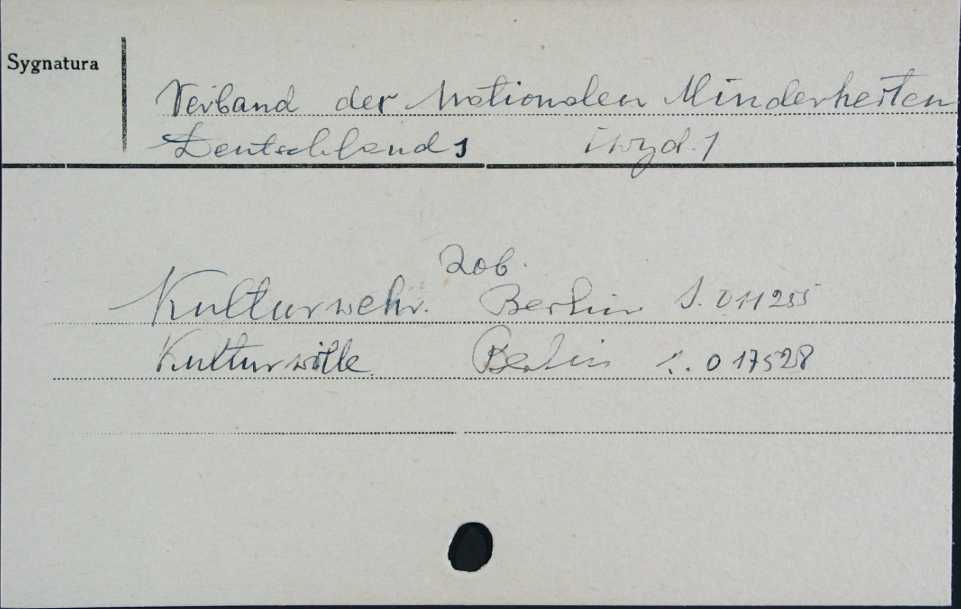 Sygnatura
Verband der Nationalen Minderheiten
Deutschlands [wyd.]
zob.
Kulturwehr. Berlin S. 011255
Kulturwille Berlin S. 017528